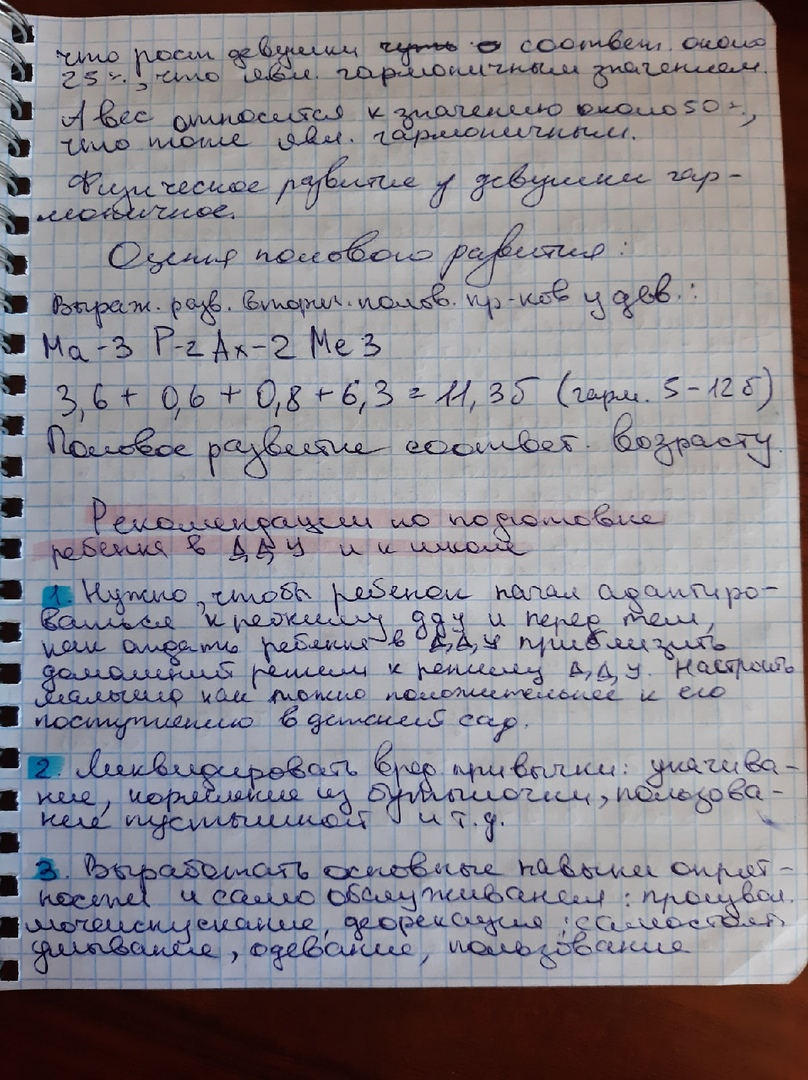 что рост девушки чуть о соответ. около
25%, что явл. гармоничным значением.
А вес относится к значению около 50%,
что тоже явл. гармоничным.
Физическое развитие у девушки гар-
моничное.
Оценка полового развития:
Выраж. разв. вторич. полов. пр-ков у дев.:
Ma-3 P-2 Ax-2 Me 3
3,6 + 0,6 + 0,8 + 6,3 = 11,3б (гарм. 5-12б)
Половое развитие соответ. возрасту.
Рекомендации по подготовке
ребенка в Д,Д,У и к школе
1. Нужно, чтобы ребенок начал адаптиро-
ваться к режиму дду и перед тем,
как отдать ребенка в Д,Д,У приблизить
домашний режим к режиму Д,Д,У. Настроить
малыша как можно положительнее к его
поступлению в детский сад.
2. Ликвидировать вред. привычки: укачива-
ние, кормление из бутылочки, пользова-
ние пустышкой и т.д.
3. Выработать основные навыки опрят-
ности и самообслуживания: произвол.
мочеиспускание, дефекация; самостоят.
умывание, одевание, пользование